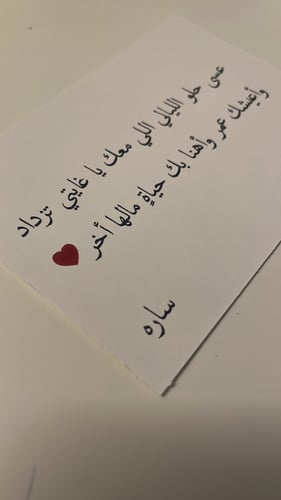 عسى حلو الليالي اللي معك يا غايتي تزداد
وأعيشك عمر وأهنا بك حياةٍ مالها أخر
ساره